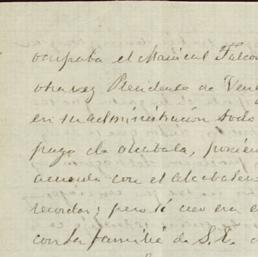 ocupaba el Mariscal Falcon
otra vez Presidente de Vene
en su administracion todo
pago de alcabala,
acuerdo con el
recordar; pero si creo era e
con la familia de S. E.